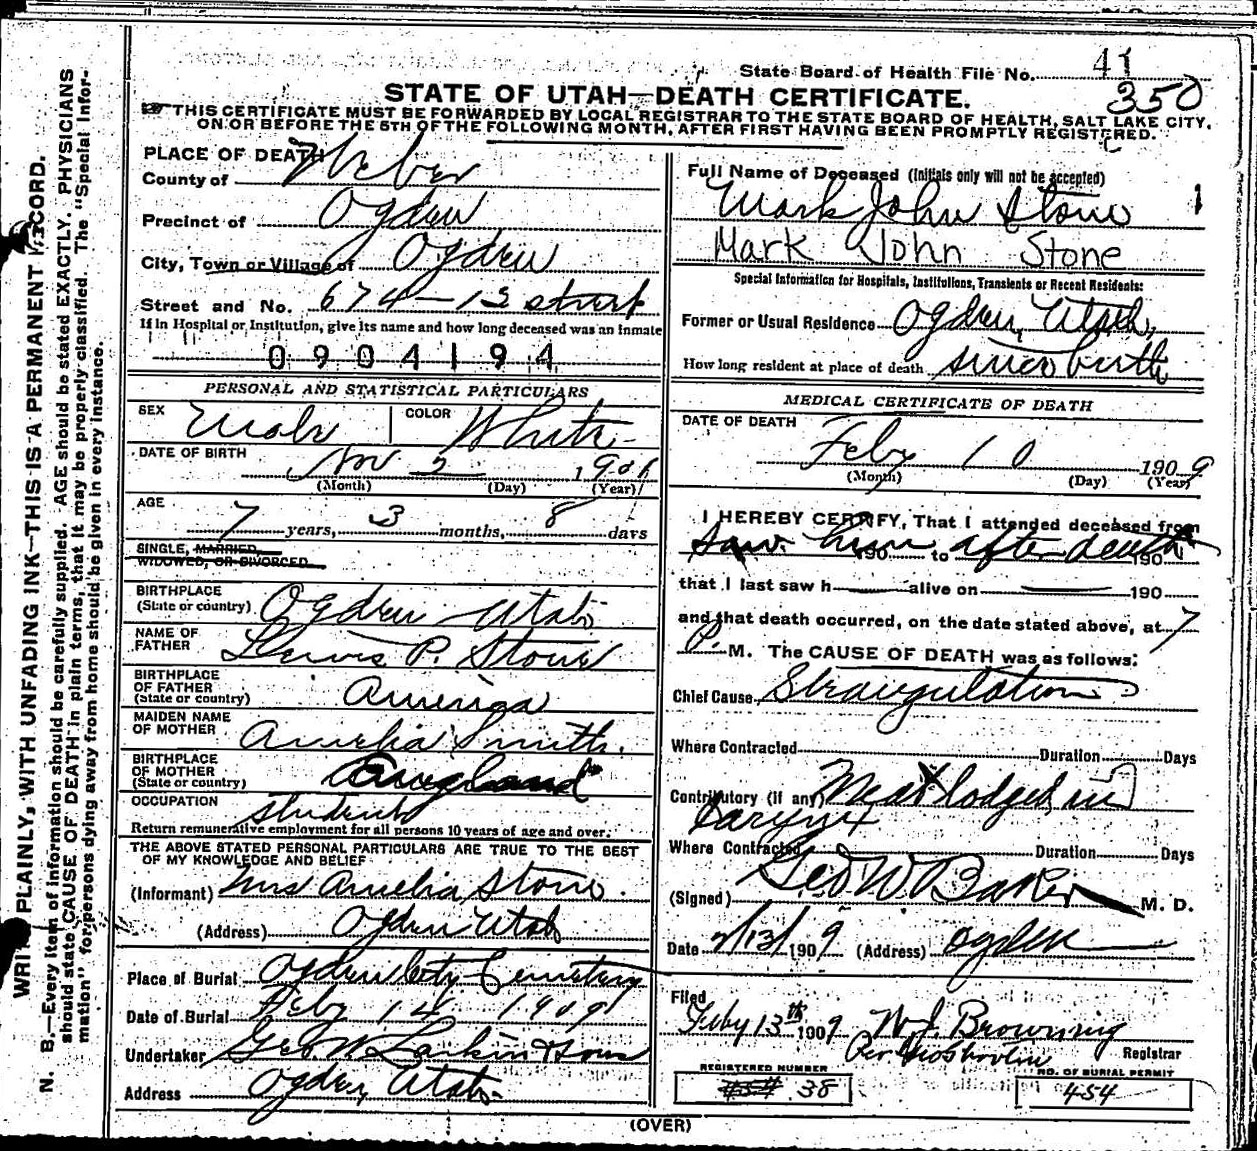 State Board of Health File No. 41
350
STATE OF UTAH—DEATH CERTIFICATE.
THIS CERTIFICATE MUST BE FORWARDED BY LOCAL REGISTRAR TO THE STATE BOARD OF HEALTH, SALT LAKE CITY,
ON OR BEFORE THE 5TH OF THE FOLLOWING MONTH, AFTER FIRST HAVING BEEN PROMPTLY REGISTERED.
WRITE PLAINLY, WITH UNFADING INK—THIS IS A PERMANENT RECORD.
N. B.—Every item of information should be carefully supplied. AGE should be stated EXACTLY. PHYSICIANS
should state CAUSE OF DEATH in plain terms, that it may be properly classified. The "Special Infor-
mation" for persons dying away from home should be given in every instance.
PLACE OF DEATH
County of Weber
Precinct of Ogden
City, Town or Village of Ogden
Street and No. 674 - 13 street
If in Hospital or Institution, give its name and how long deceased was an inmate
0904194
PERSONAL AND STATISTICAL PARTICULARS
SEX Male COLOR White
DATE OF BIRTH Nov 2 1901
(Month) (Day) (Year)
AGE 7 years, 3 months, 8 days
SINGLE, MARRIED,
WIDOWED, OR DIVORCED
BIRTHPLACE
(State or country) Ogden Utah
NAME OF
FATHER Lewis P. Stone
BIRTHPLACE
OF FATHER
(State or country) America
MAIDEN NAME
OF MOTHER Amelia Smith.
BIRTHPLACE
OF MOTHER
(State or country) England
OCCUPATION Student
Return remunerative employment for all persons 10 years of age and over.
THE ABOVE STATED PERSONAL PARTICULARS ARE TRUE TO THE BEST
OF MY KNOWLEDGE AND BELIEF
(Informant) Mrs Amelia Stone.
(Address) Ogden Utah
Place of Burial Ogden City Cemetery
Date of Burial Feby 14 1909
Undertaker Geo. W. Larkin & Sons
Address Ogden, Utah.
Full Name of Deceased (Initials only will not be accepted)
Mark John Stone 1
Mark John Stone
Special Information for Hospitals, Institutions, Transients or Recent Residents:
Former or Usual Residence Ogden, Utah,
How long resident at place of death since birth
MEDICAL CERTIFICATE OF DEATH
DATE OF DEATH
Feby 10 1909
(Month) (Day) (Year)
I HEREBY CERTIFY, That I attended deceased from
Saw him 190 to after death 190
that I last saw h alive on 190
and that death occurred, on the date stated above, at 7
P. M. The CAUSE OF DEATH was as follows:
Chief Cause Strangulation
Where Contracted Duration Days
Contributory (if any) Meat lodged in
Larynx
Where Contracted Duration Days
(Signed) Geo W Baker M. D.
Date 2/13/1909 (Address) Ogden
Filed
Feby 13th 1909 W. J. Browning
Registrar
REGISTERED NUMBER
454 38
NO. OF BURIAL PERMIT
454
(OVER)